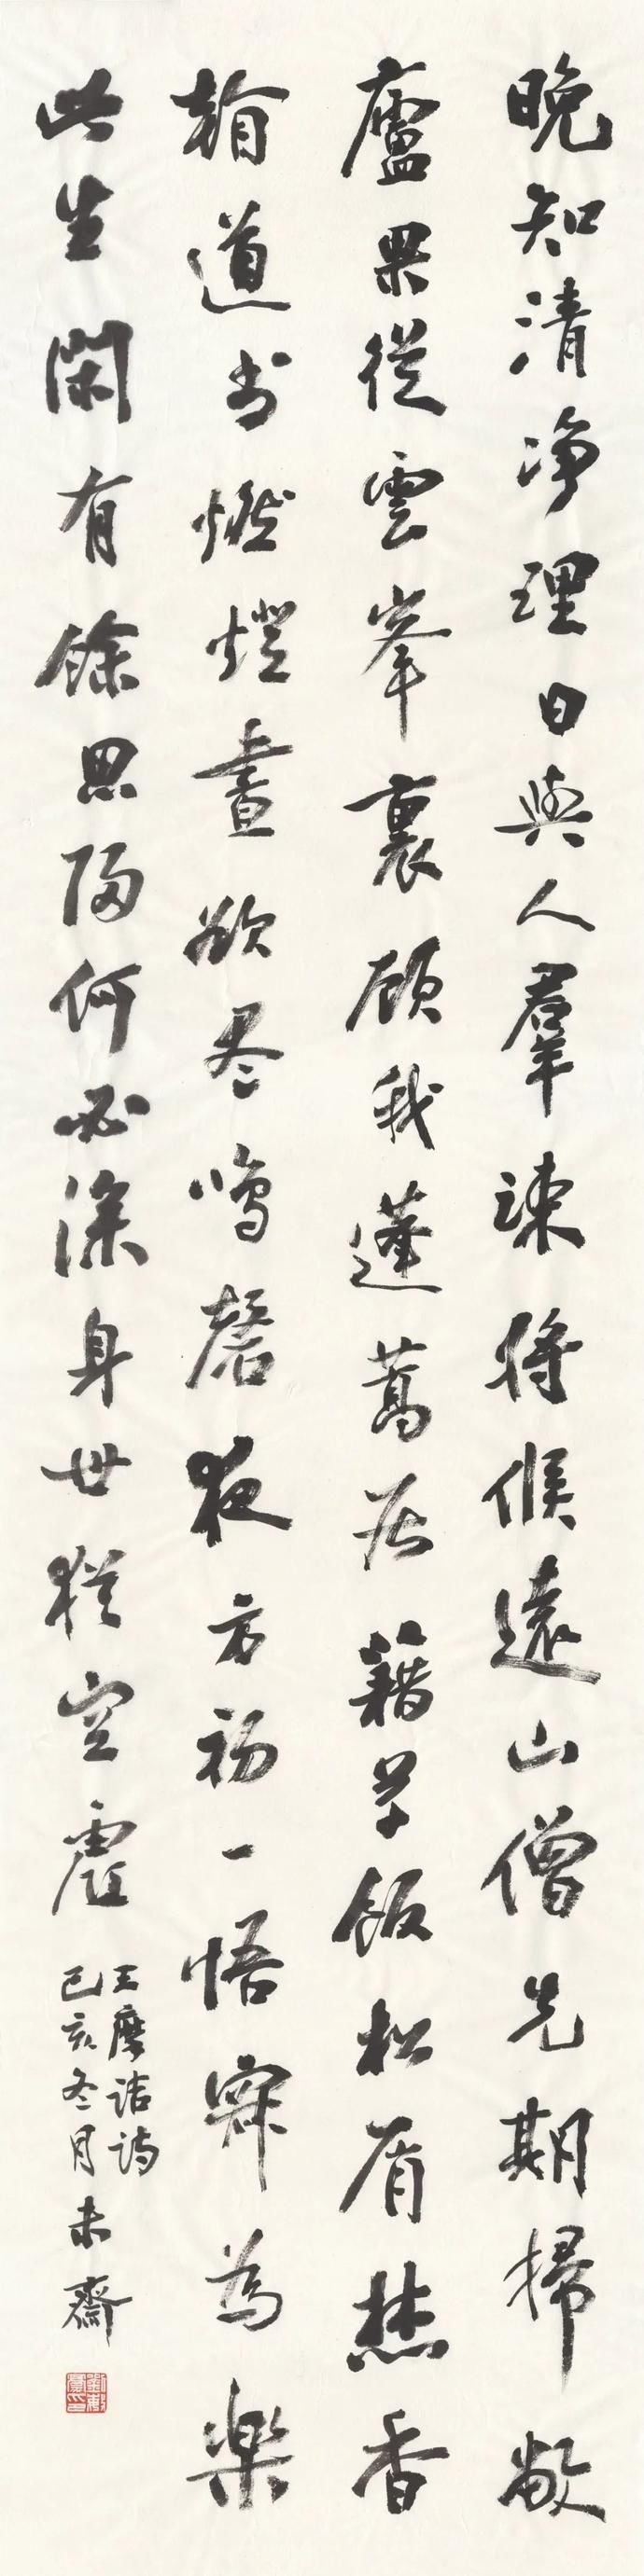 晚知清净理日與人羣踈将候遠山僧先期掃敝
廬果從雲峯裏顧我蓬蒿居籍草飯松屑焚香
看道书燃燈晝欲尽鳴磬夜方初一悟寂為樂
此生閑有餘思歸何必深身世猶空虛
王摩诘诗
己亥冬月未齋